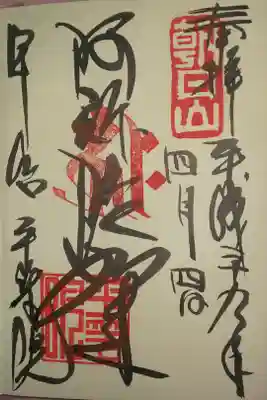 奉拝 平成二十九年
朝日山
四月四日
阿弥陀如来
宇治 平等院